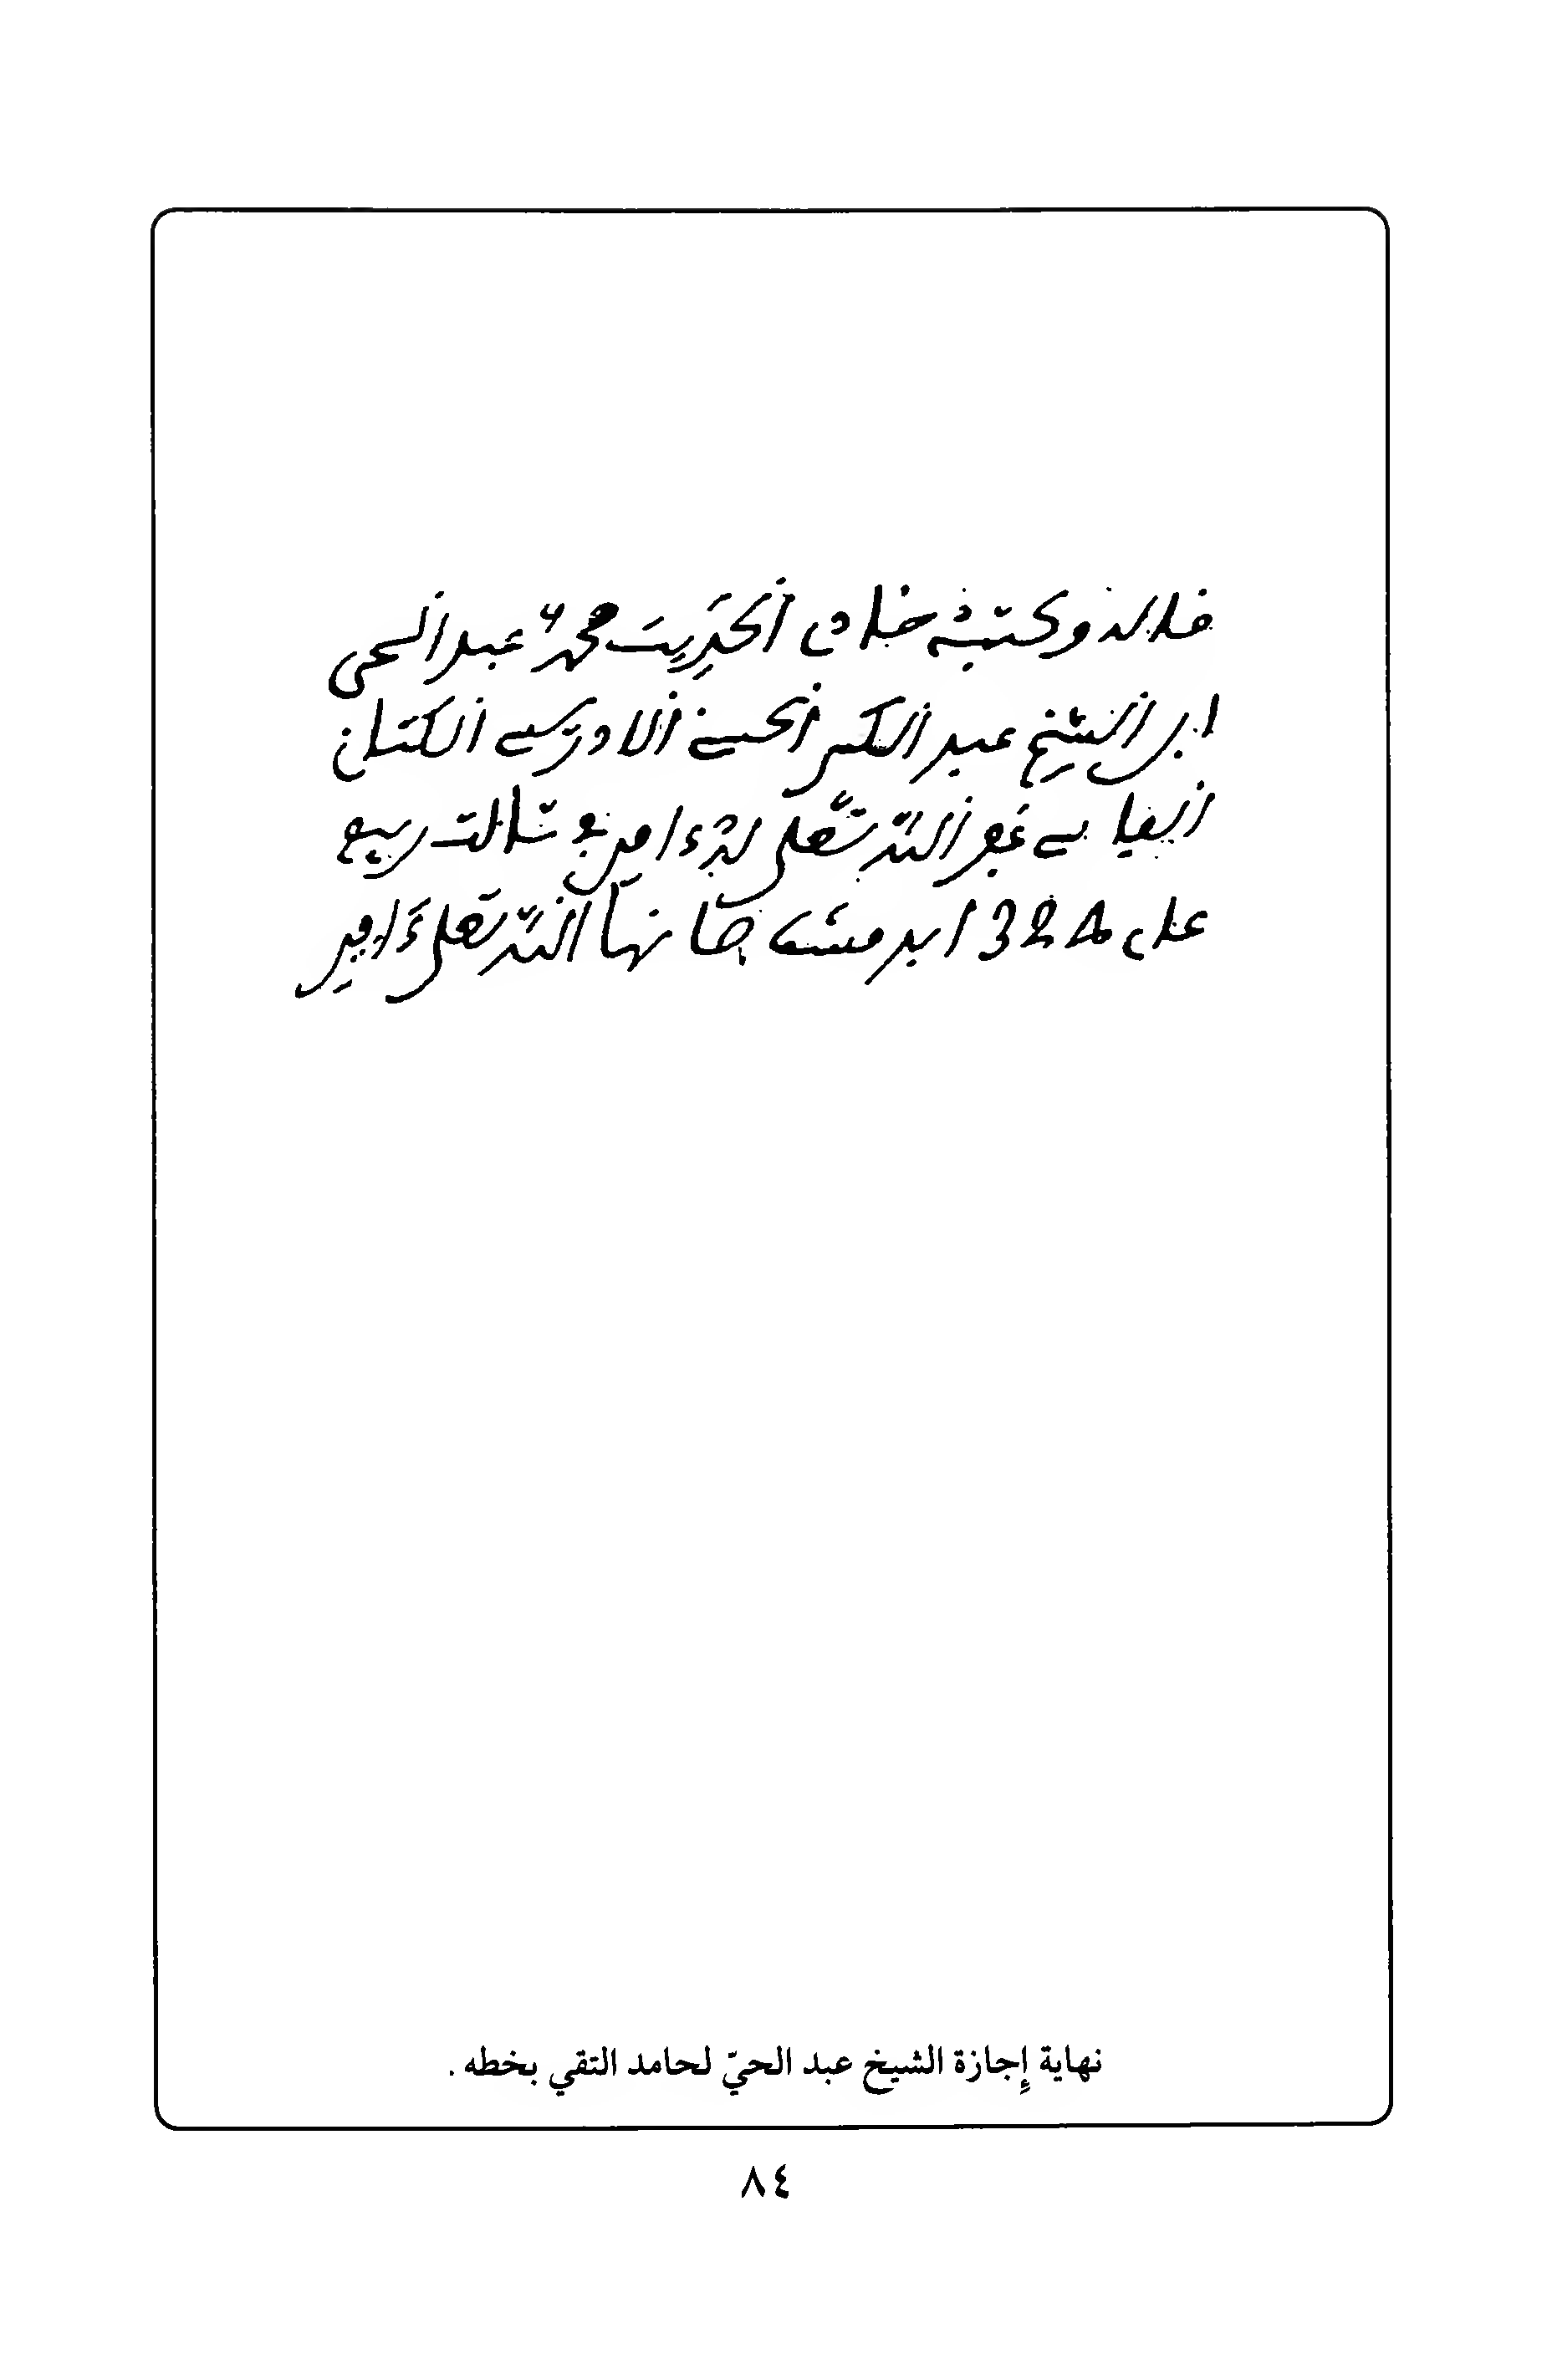 قاله وكتبه خادم الحديث محمد عبد الحي
ابن الشيخ عبد الكبير الحسني الادريسي الكتاني
الفاسي غفر الله تعلى له ءامين في ثالث ربيع
عام 1324 بدمشق صانها الله تعلى ءامين
نهاية إجازة الشيخ عبد الحيّ لحامد التقي بخطه .
٨٤